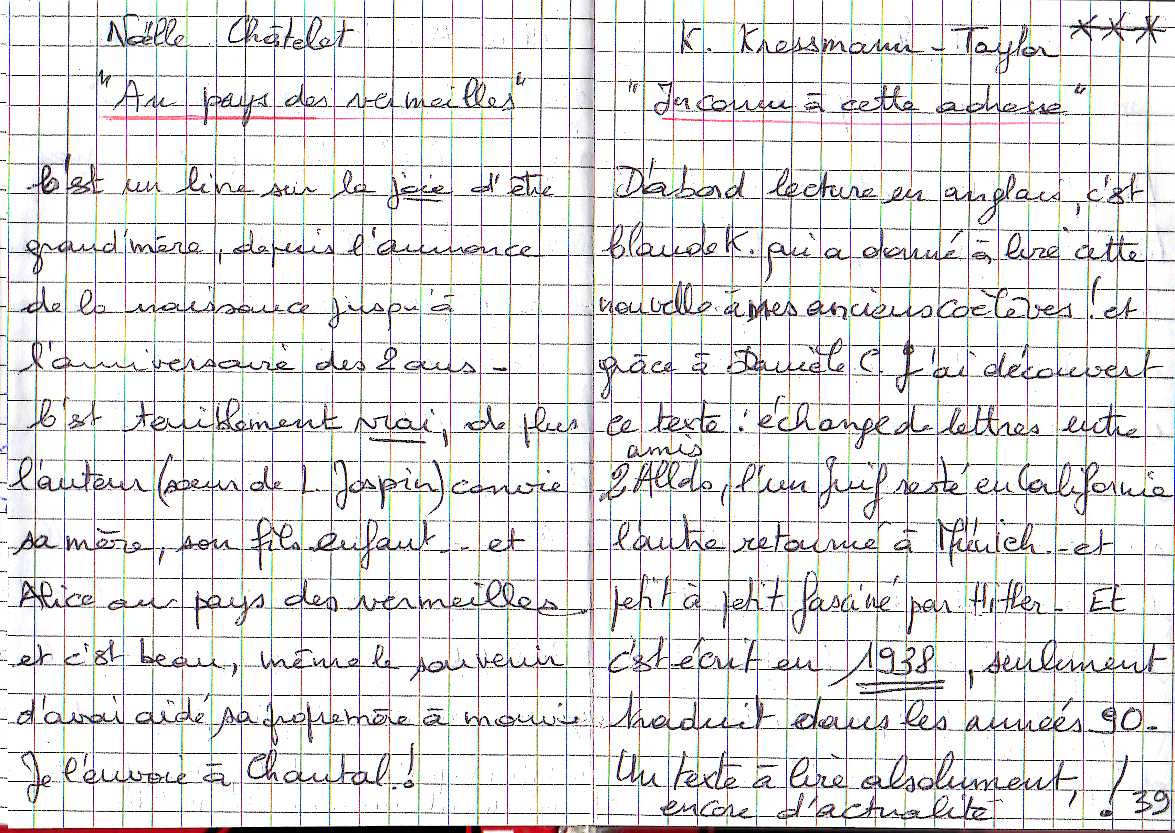 Noëlle Châtelet
"Au pays des vermeilles"
C'est un livre sur la joie d'être
grand'mère, depuis l'annonce
de la naissance jusqu'à
l'anniversaire des 2 ans -
C'est terriblement vrai, de plus
l'auteur (soeur de L. Jospin) convie
sa mère, son fils enfant.. et
Alice au pays des vermeilles
et c'est beau, même le souvenir
d'avoir aidé sa propre mère à mourir
Je l'envoie à Chantal !
K. Kressmann-Taylor ***
"Inconnu à cette adresse"
D'abord lecture en anglais, c'est
Claude K. qui a donné à lire cette
nouvelle à mes anciens coélèves ! et
grâce à Danièle C. j'ai découvert
ce texte : échange de lettres entre
amis
2 Allds, l'un Juif resté en Californie
l'autre retourné à Münich - et
petit à petit fasciné par Hitler - Et
c'est écrit en 1938, seulement
traduit dans les années 90 -
Un texte à lire absolument,
encore d'actualité !
39